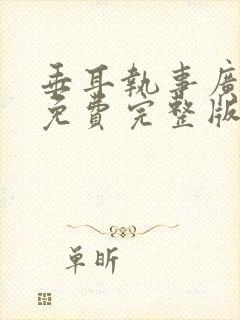 垂耳執事廣
免費完整版
單昕